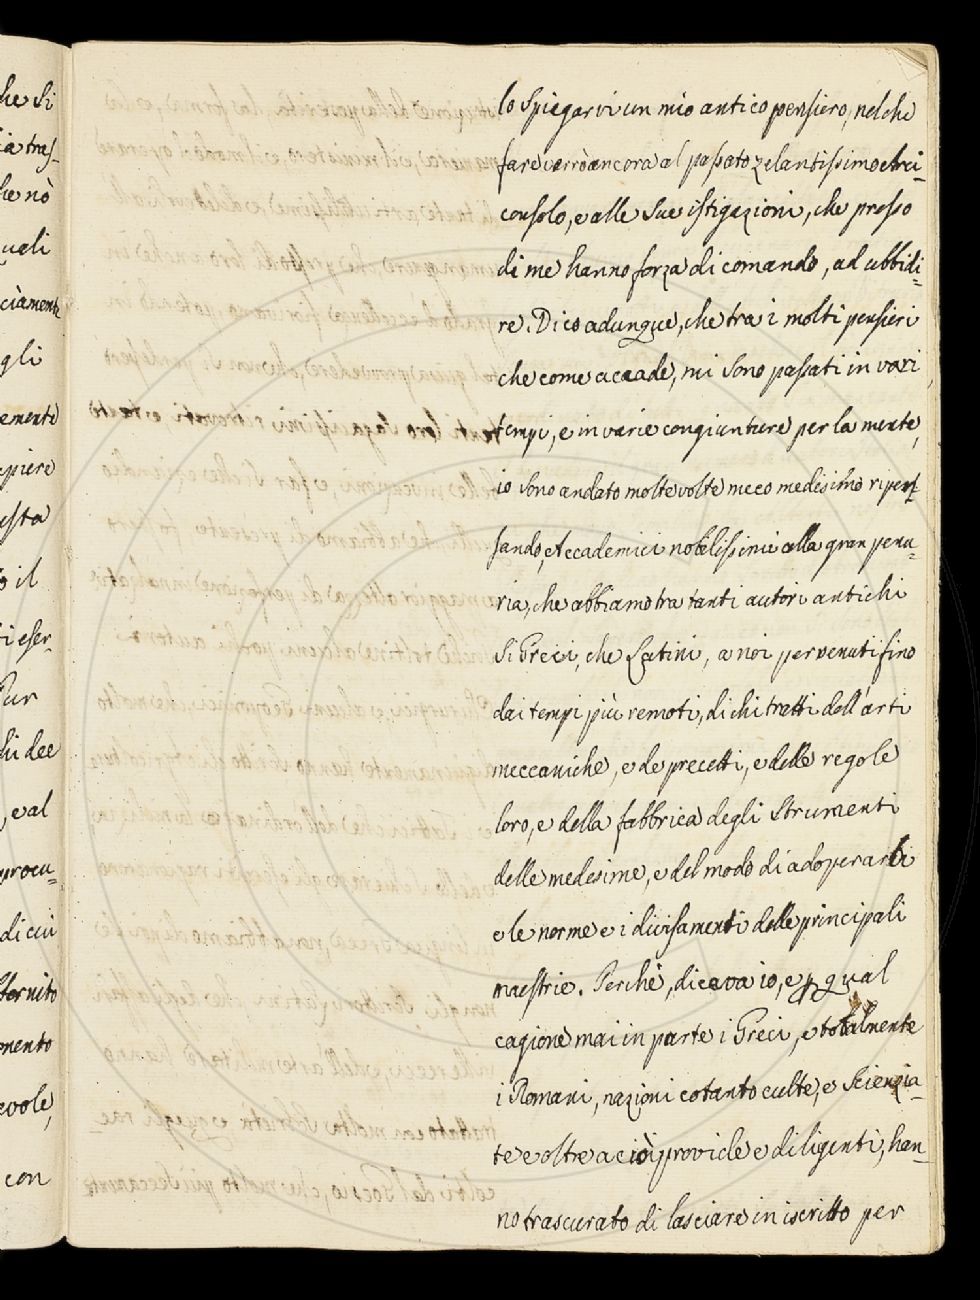 he si
ia tras-
he nò
uali
ciamente
gli
emente
epiere
esta
o il
i eser-
Pur
hi dee
, e al
procu=
di cui
fornito
mento
evole,
con
lo spiegarvi un mio antico pensiero, nel che
fare verrò ancora al passato zelantissimo Arci-
consolo, e alle sue istigazioni, che presso
di me hanno forza di comando, ad ubbidi=
re. Dico adunque, che tra i molti pensieri
che come accade, mi sono passati in vari
tempi, e in varie congiunture per la mente,
io sono andato molte volte meco medesimo ripen=
sando, Accademici nobilissimi alla gran penu=
ria, che abbiamo tra tanti autori antichi
sì Greci, che Latini, a noi pervenuti fino
dai tempi più remoti, di chi tratti dell'arti
meccaniche, e de precetti, e delle regole
loro, e della fabbrica degli strumenti
delle medesime, e del modo di adoperarli
e le norme e i divisamenti delle principali
maestrie. Perchè, diceva io, e p qual
cagione mai in parte i Greci, e totalmente
i Romani, nazioni cotanto culte, e scienzia-
te e oltre a ciò provide e diligenti, han-
no trascurato di lasciare in iscritto per